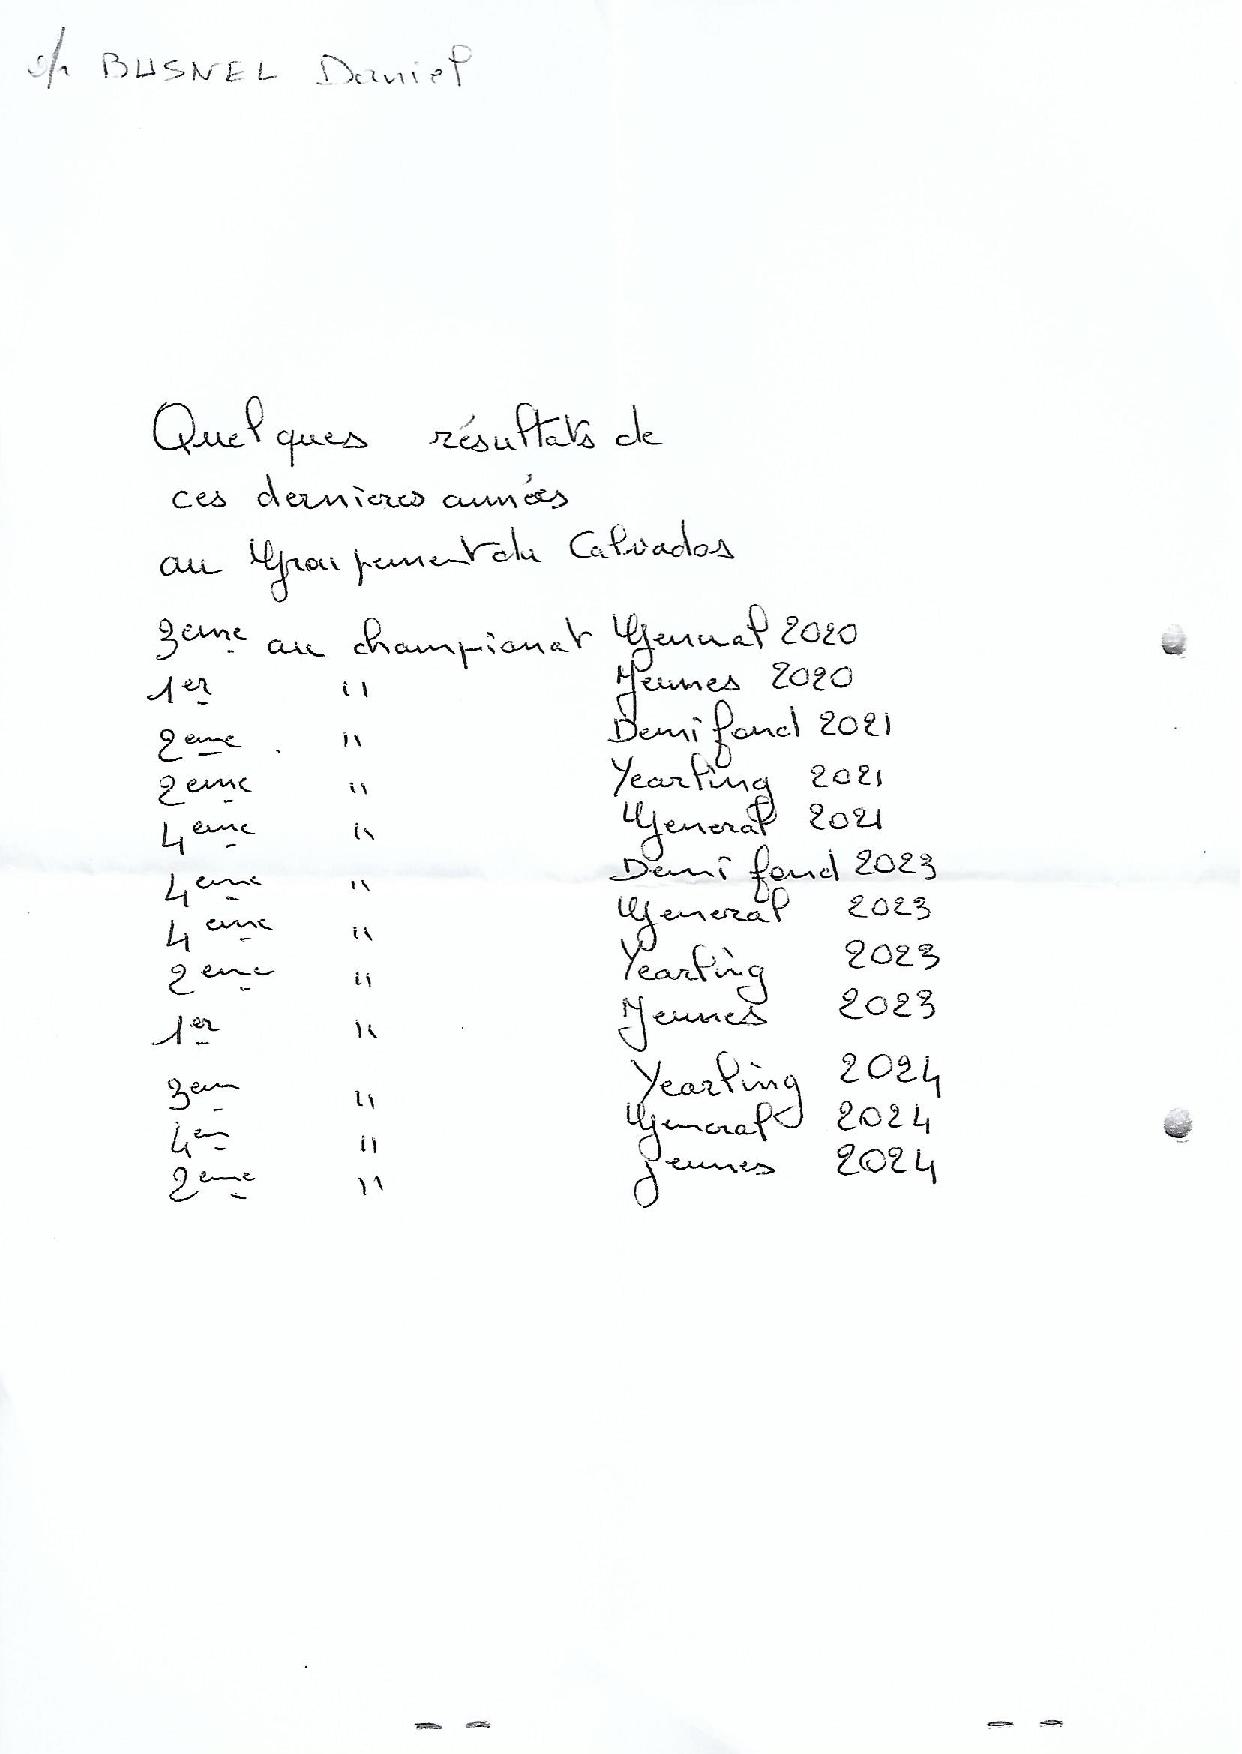 s/r BUSNEL Daniel
Quelques résultats de
ces dernieres années
au Groupement du Calvados
3eme au championat General 2020
1er " Jeunes 2020
2eme " Demi fond 2021
2eme " Yearling 2021
4eme " General 2021
4eme " Demi fond 2023
4eme " General 2023
2eme " Yearling 2023
1er " Jeunes 2023
3em " Yearling 2024
4em " General 2024
2eme " jeunes 2024